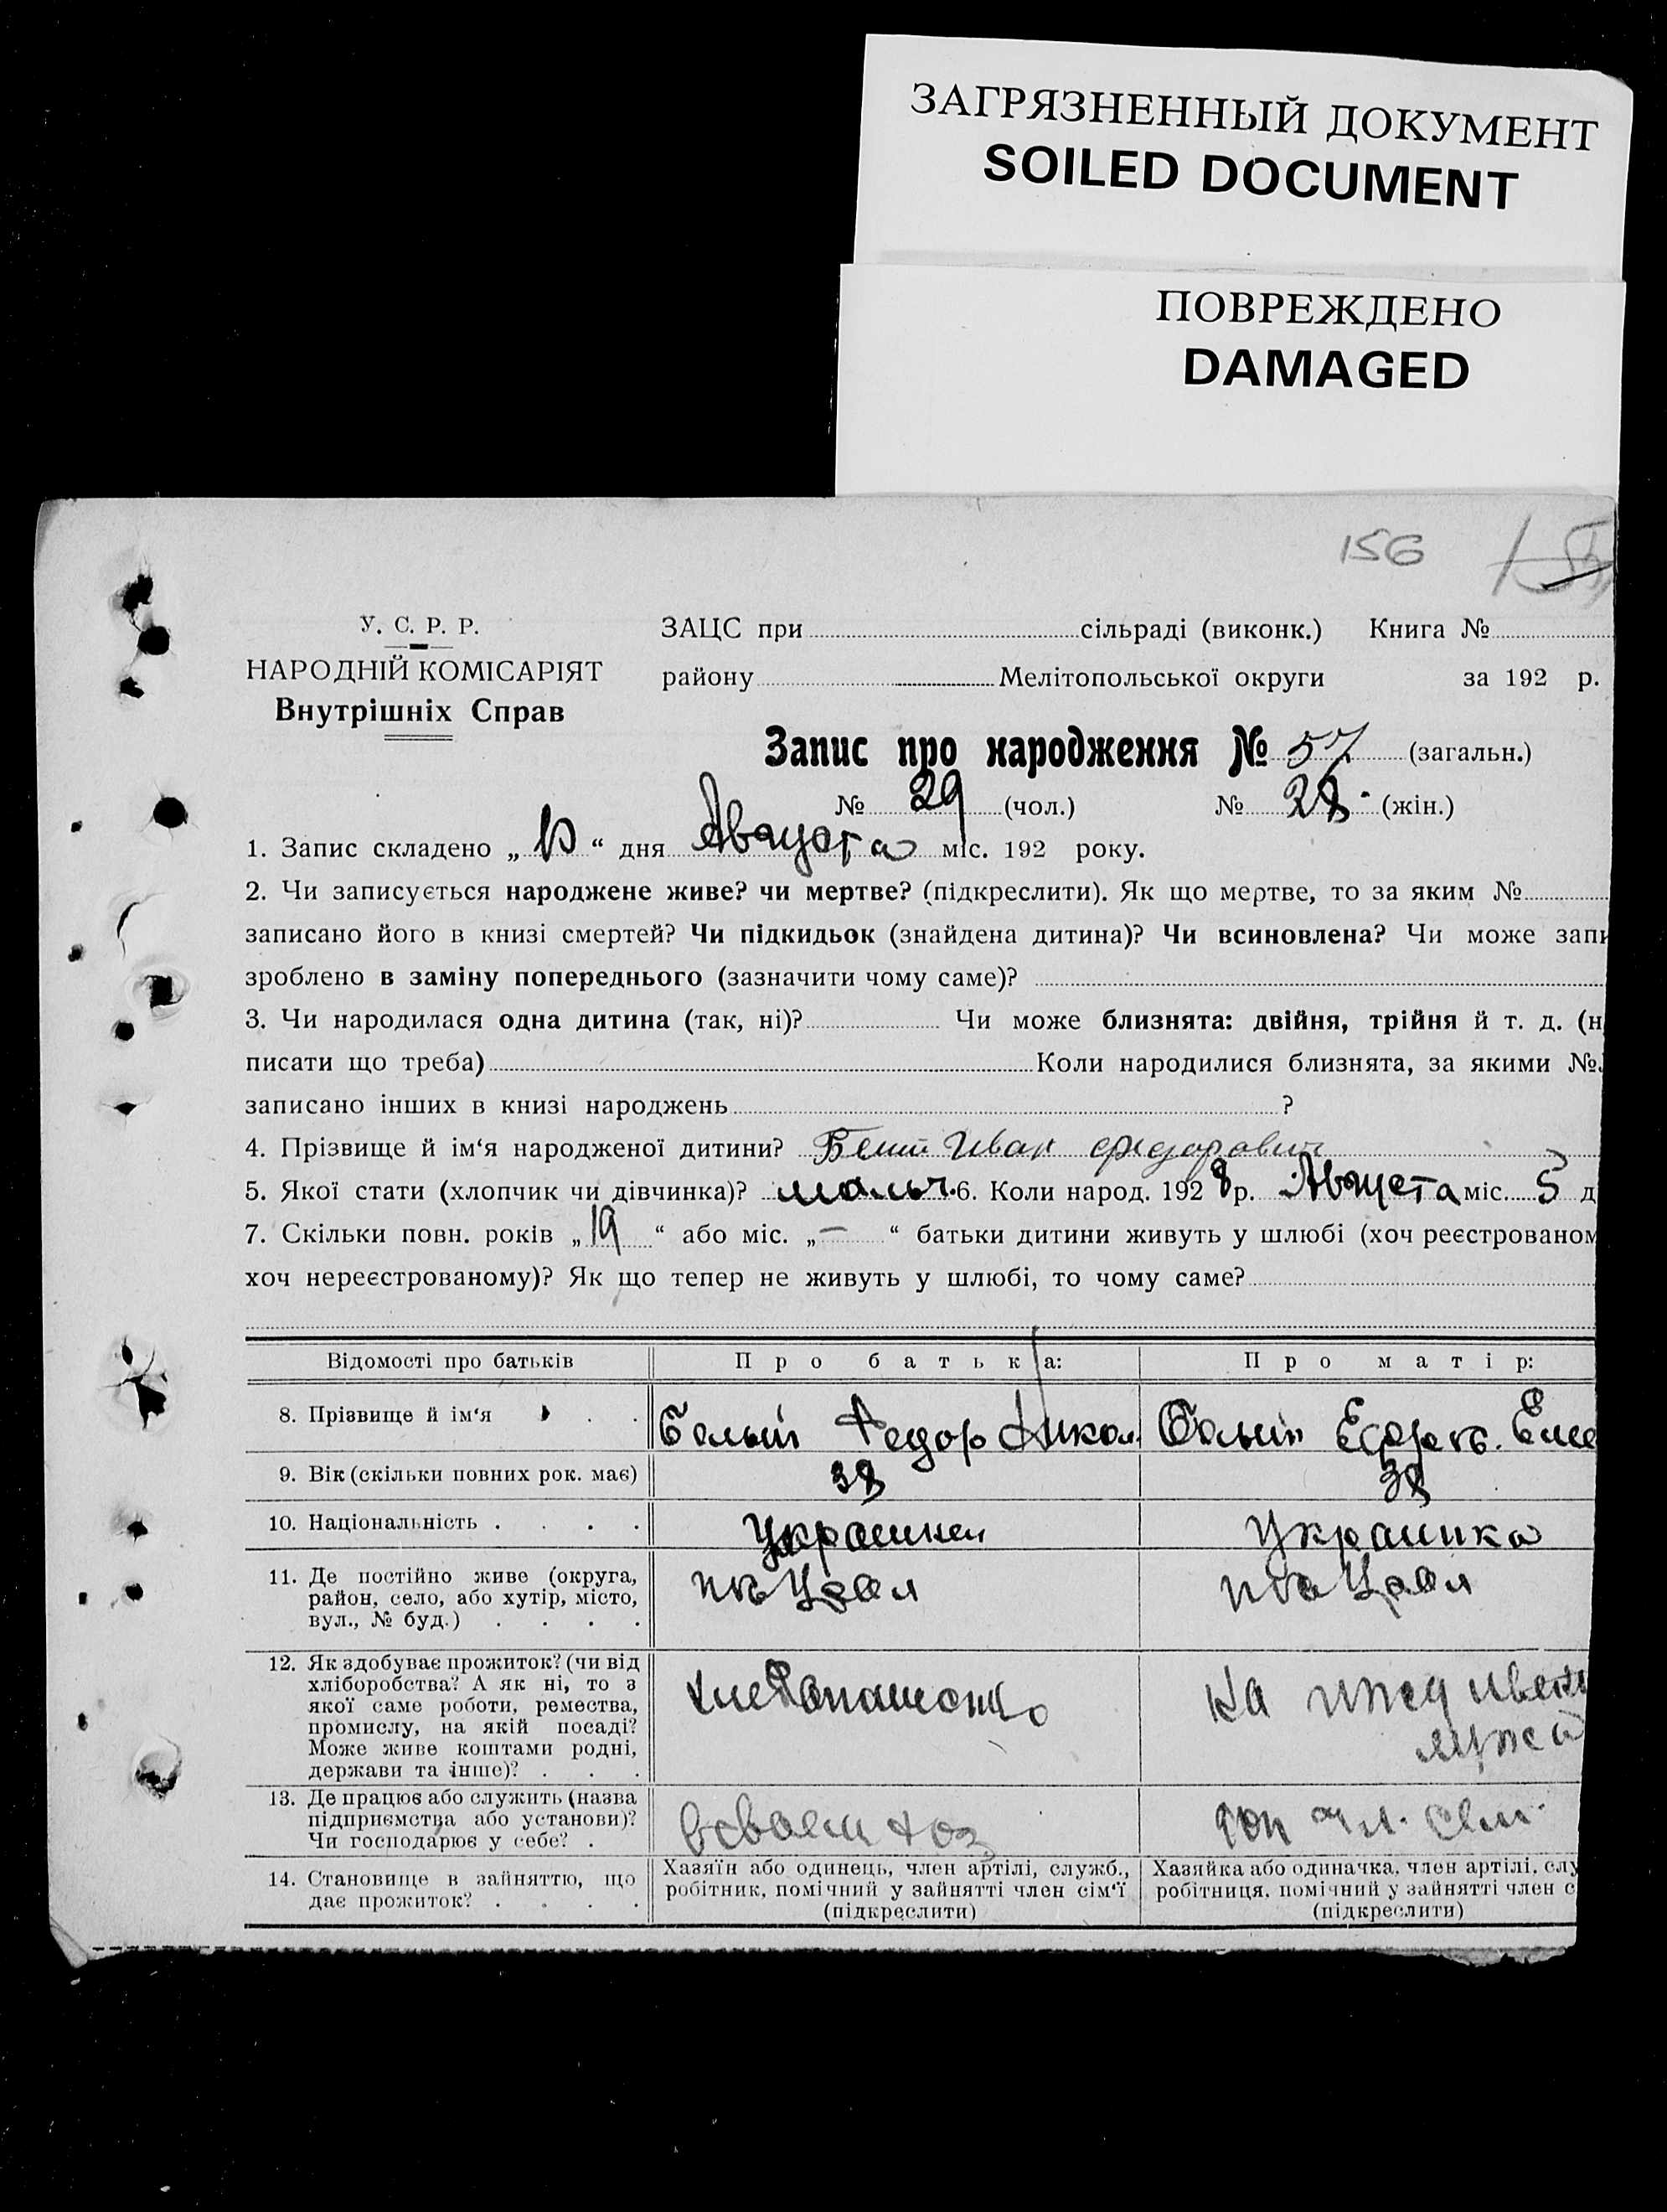 ЗАГРЯЗНЕННЫЙ ДОКУМЕНТ
SOILED DOCUMENT
ПОВРЕЖДЕНО
DAMAGED
156
У. С. Р. Р.
НАРОДНІЙ КОМІСАРІЯТ
Внутрішніх Справ
ЗАЦС при сільраді (виконк.) Книга №
району Мелітопольської округи за 192 р.
Запис про народження № 57 (загальн.)
№ 29 (чол.) № 28 (жін.)
1. Запис складено „ “ дня Августа міс. 192 року.
2. Чи записується народжене живе? чи мертве? (підкреслити). Як що мертве, то за яким №
записано його в книзі смертей? Чи підкидьок (знайдена дитина)? Чи всиновлена? Чи може запи
зроблено в заміну попереднього (зазначити чому саме)?
3. Чи народилася одна дитина (так, ні)? Чи може близнята: двійня, трійня й т. д. (н
писати що треба) Коли народилися близнята, за якими №
записано інших в книзі народжень ?
4. Прізвище й ім‘я народженої дитини? Иван Федорович
5. Якої стати (хлопчик чи дівчинка)? мальч. 6. Коли народ. 1928 р. Августа міс. 5 д
7. Скільки повн. років „19“ або міс. „—“ батьки дитини живуть у шлюбі (хоч реєстрованом
хоч нереєстрованому)? Як що тепер не живуть у шлюбі, то чому саме?
Відомості про батьків Про батька: Про матір:
8. Прізвище й ім‘я Белый Федор Никол.
9. Вік (скільки повних рок. має) 38 38
10. Національність Украинец Украинка
11. Де постійно живе (округа,
район, село, або хутір, місто,
вул., № буд.)
12. Як здобуває прожиток? (чи від
хліборобства? А як ні, то з
якої саме роботи, ремества,
промислу, на якій посаді?
Може живе коштами родні,
держави та інше)?
хлебопашство
на иждивени
мужа
13. Де працює або служить (назва
підприємства або установи)?
Чи господарює у себе?
всвоем хоз
14. Становище в зайняттю, що
дає прожиток?
Хазяїн або одинець, член артілі, служб.,
робітник, помічний у зайнятті член сім‘ї
(підкреслити)
Хазяйка або одиначка, член артілі, слу
робітниця, помічний у зайнятті член с
(підкреслити)